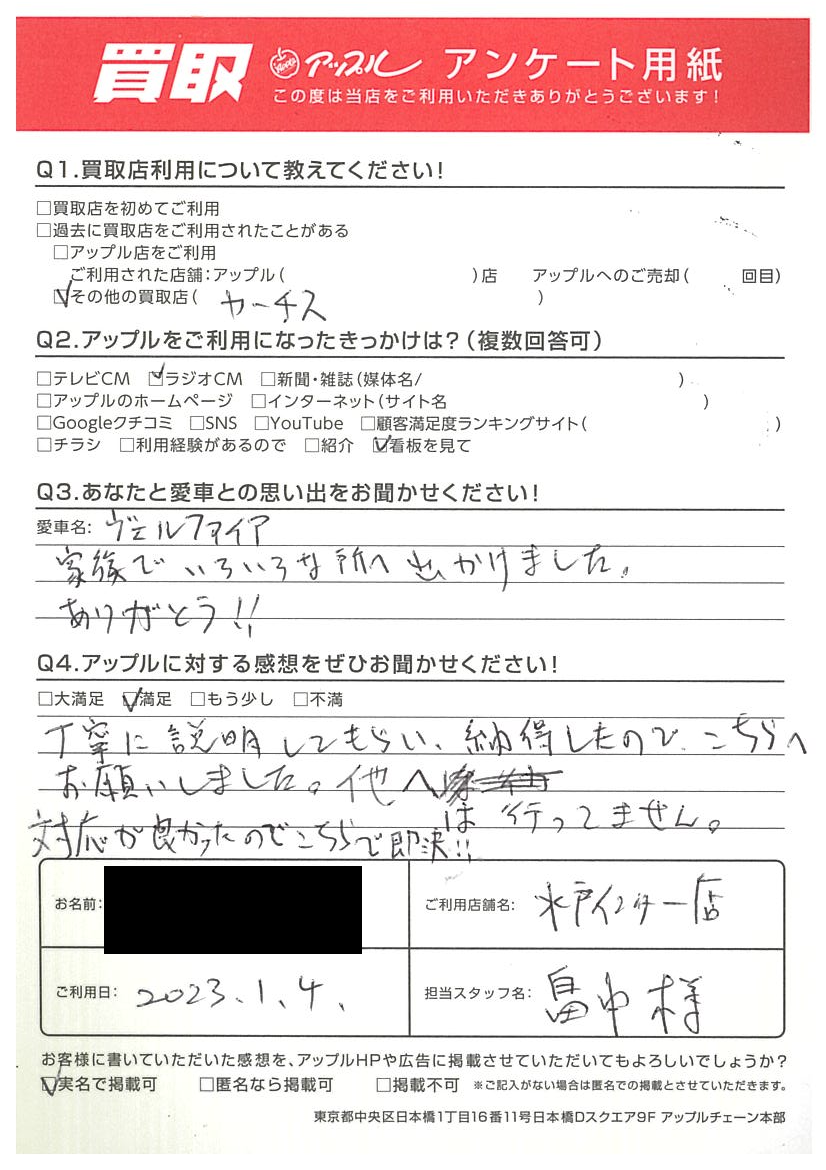 買取 アップル アンケート用紙
この度は当店をご利用いただきありがとうございます!
Q1.買取店利用について教えてください!
□買取店を初めてご利用
□過去に買取店をご利用されたことがある
□アップル店をご利用
ご利用された店舗:アップル( )店 アップルへのご売却( 回目)
☑その他の買取店( カーチス )
Q2.アップルをご利用になったきっかけは?(複数回答可)
□テレビCM ☑ラジオCM □新聞・雑誌(媒体名/ )
□アップルのホームページ □インターネット(サイト名 )
□Googleクチコミ □SNS □YouTube □顧客満足度ランキングサイト( )
□チラシ □利用経験があるので □紹介 ☑看板を見て
Q3.あなたと愛車との思い出をお聞かせください!
愛車名: ヴェルファイア
家族でいろいろな所へ出かけました。
ありがとう!!
Q4.アップルに対する感想をぜひお聞かせください!
□大満足 ☑満足 □もう少し □不満
丁寧に説明してもらい、納得したので、こちらへ
お願いしました。他へ
は行ってません。
対応が良かったのでこちらで即決!!
お名前: ご利用店舗名: 水戸インター店
ご利用日: 2023.1.4. 担当スタッフ名: 畠中様
お客様に書いていただいた感想を、アップルHPや広告に掲載させていただいてもよろしいでしょうか?
☑実名で掲載可 □匿名なら掲載可 □掲載不可 ※ご記入がない場合は匿名での掲載とさせていただきます。
東京都中央区日本橋1丁目16番11号日本橋Dスクエア9F アップルチェーン本部